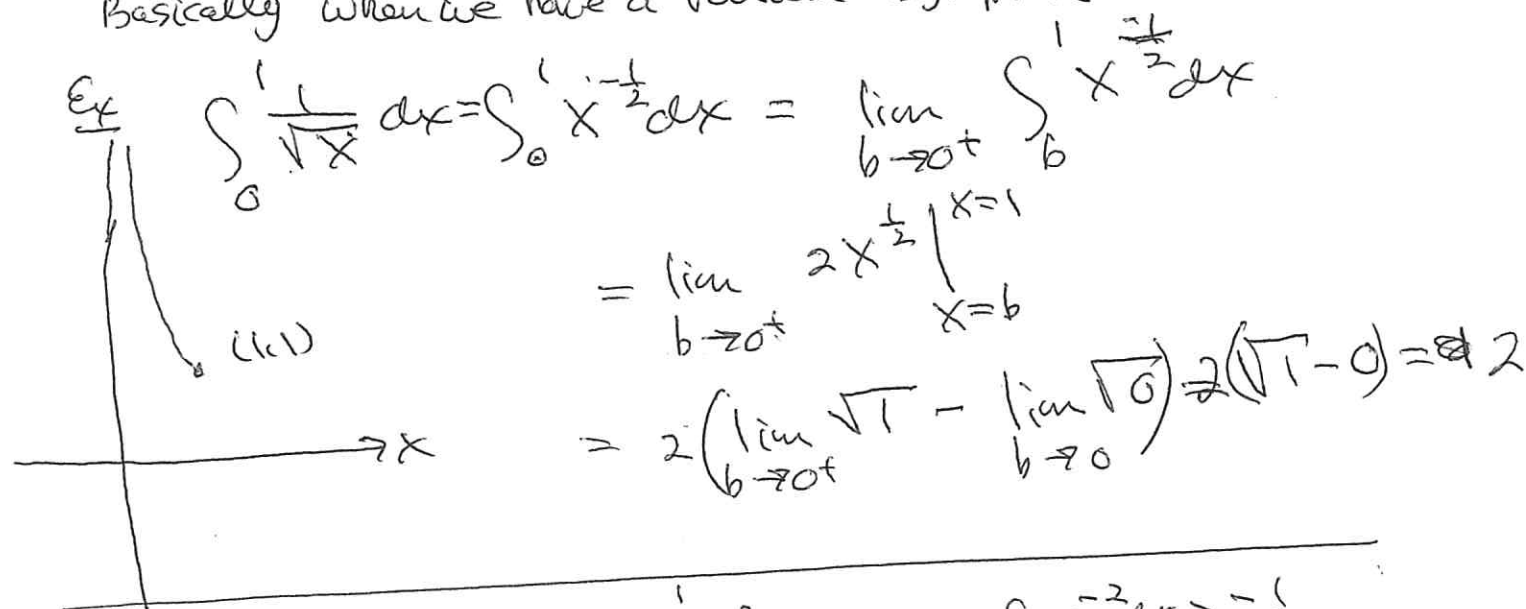 Basically when we have a
Ex ∫_0^1 1/√x dx = ∫_0^1 x^{-1/2} dx = lim_{b→0^+} ∫_b^1 x^{-1/2} dx
= lim_{b→0^+} 2x^{1/2} |_{x=b}^{x=1}
(1,1)
= 2(lim_{b→0^+} √1 - lim_{b→0} √0) = 2(√1 - 0) = 2
x